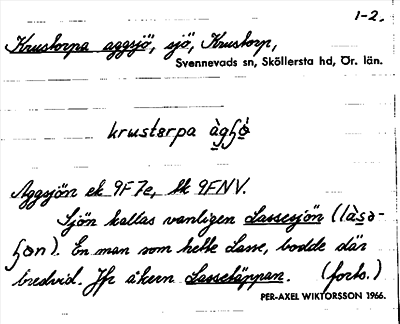 1-2.
Krustorpa aggsjö, sjö, Krustorp,
Svennevads sn, Sköllersta hd, Ör. län.
krustørpa
Aggsjön ek 9F7e, hk 9FNV.
Sjön kallas vanligen Lassesjön (làsə-
ɧøn). En man som hette Lasse, bodde där
bredvid. Jfr åkern Lassetäppan. (forts.)
PER-AXEL WIKTORSSON 1966.